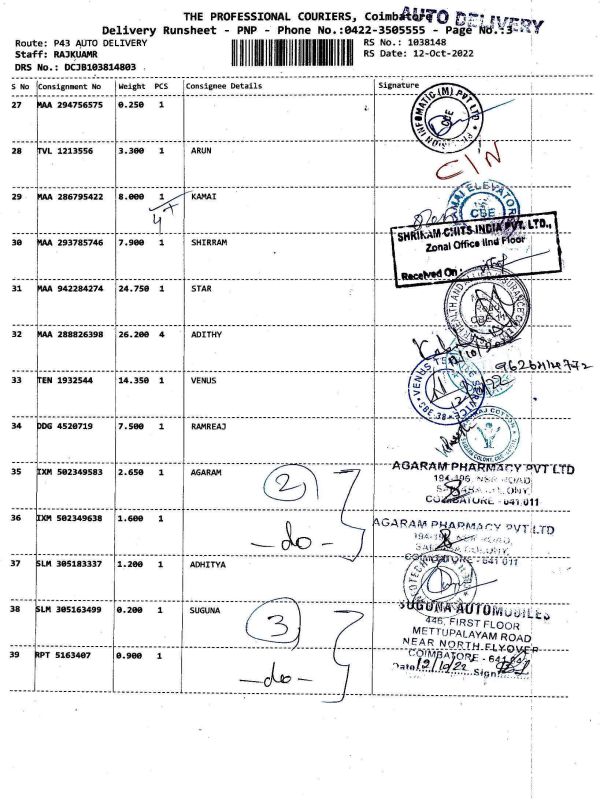 THE PROFESSIONAL COURIERS, Coimbatore
AUTO DELIVERY
Delivery Runsheet - PNP - Phone No.:0422-3505555 - Page No.:3
Route: P43 AUTO DELIVERY
RS No.: 1038148
Staff: RAJKUAMR
RS Date: 12-Oct-2022
DRS No.: DCJB103814803
S No Consignment No Weight PCS Consignee Details Signature
27 MAA 294756575 0.250 1
28 TVL 1213556 3.300 1 ARUN
C/N
29 MAA 286795422 8.000 1 KAMAI
KAMAI ELEVATORS
CBE
SHRIRAM CHITS INDIA PVT. LTD.,
Zonal Office IInd Floor
Received On :
30 MAA 293785746 7.900 1 SHIRRAM
31 MAA 942284274 24.750 1 STAR
32 MAA 288826398 26.200 4 ADITHY
33 TEN 1932544 14.350 1 VENUS
VENUS
CBE-38
34 DDG 4520719 7.500 1 RAMREAJ
35 IXM 502349583 2.650 1 AGARAM
2
AGARAM PHARMACY PVT LTD
194-196, NSR ROAD,
COIMBATORE - 641 011
36 IXM 502349638 1.600 1
-do-
AGARAM PHARMACY PVT LTD
COIMBATORE - 641 011
37 SLM 305183337 1.200 1 ADHITYA
38 SLM 305163499 0.200 1 SUGUNA
3
SUGUNA AUTOMOBILES
446, FIRST FLOOR
METTUPALAYAM ROAD
NEAR NORTH FLYOVER
39 RPT 5163407 0.900 1
-do-
COIMBATORE - 641
Date 12/10/22 Sign